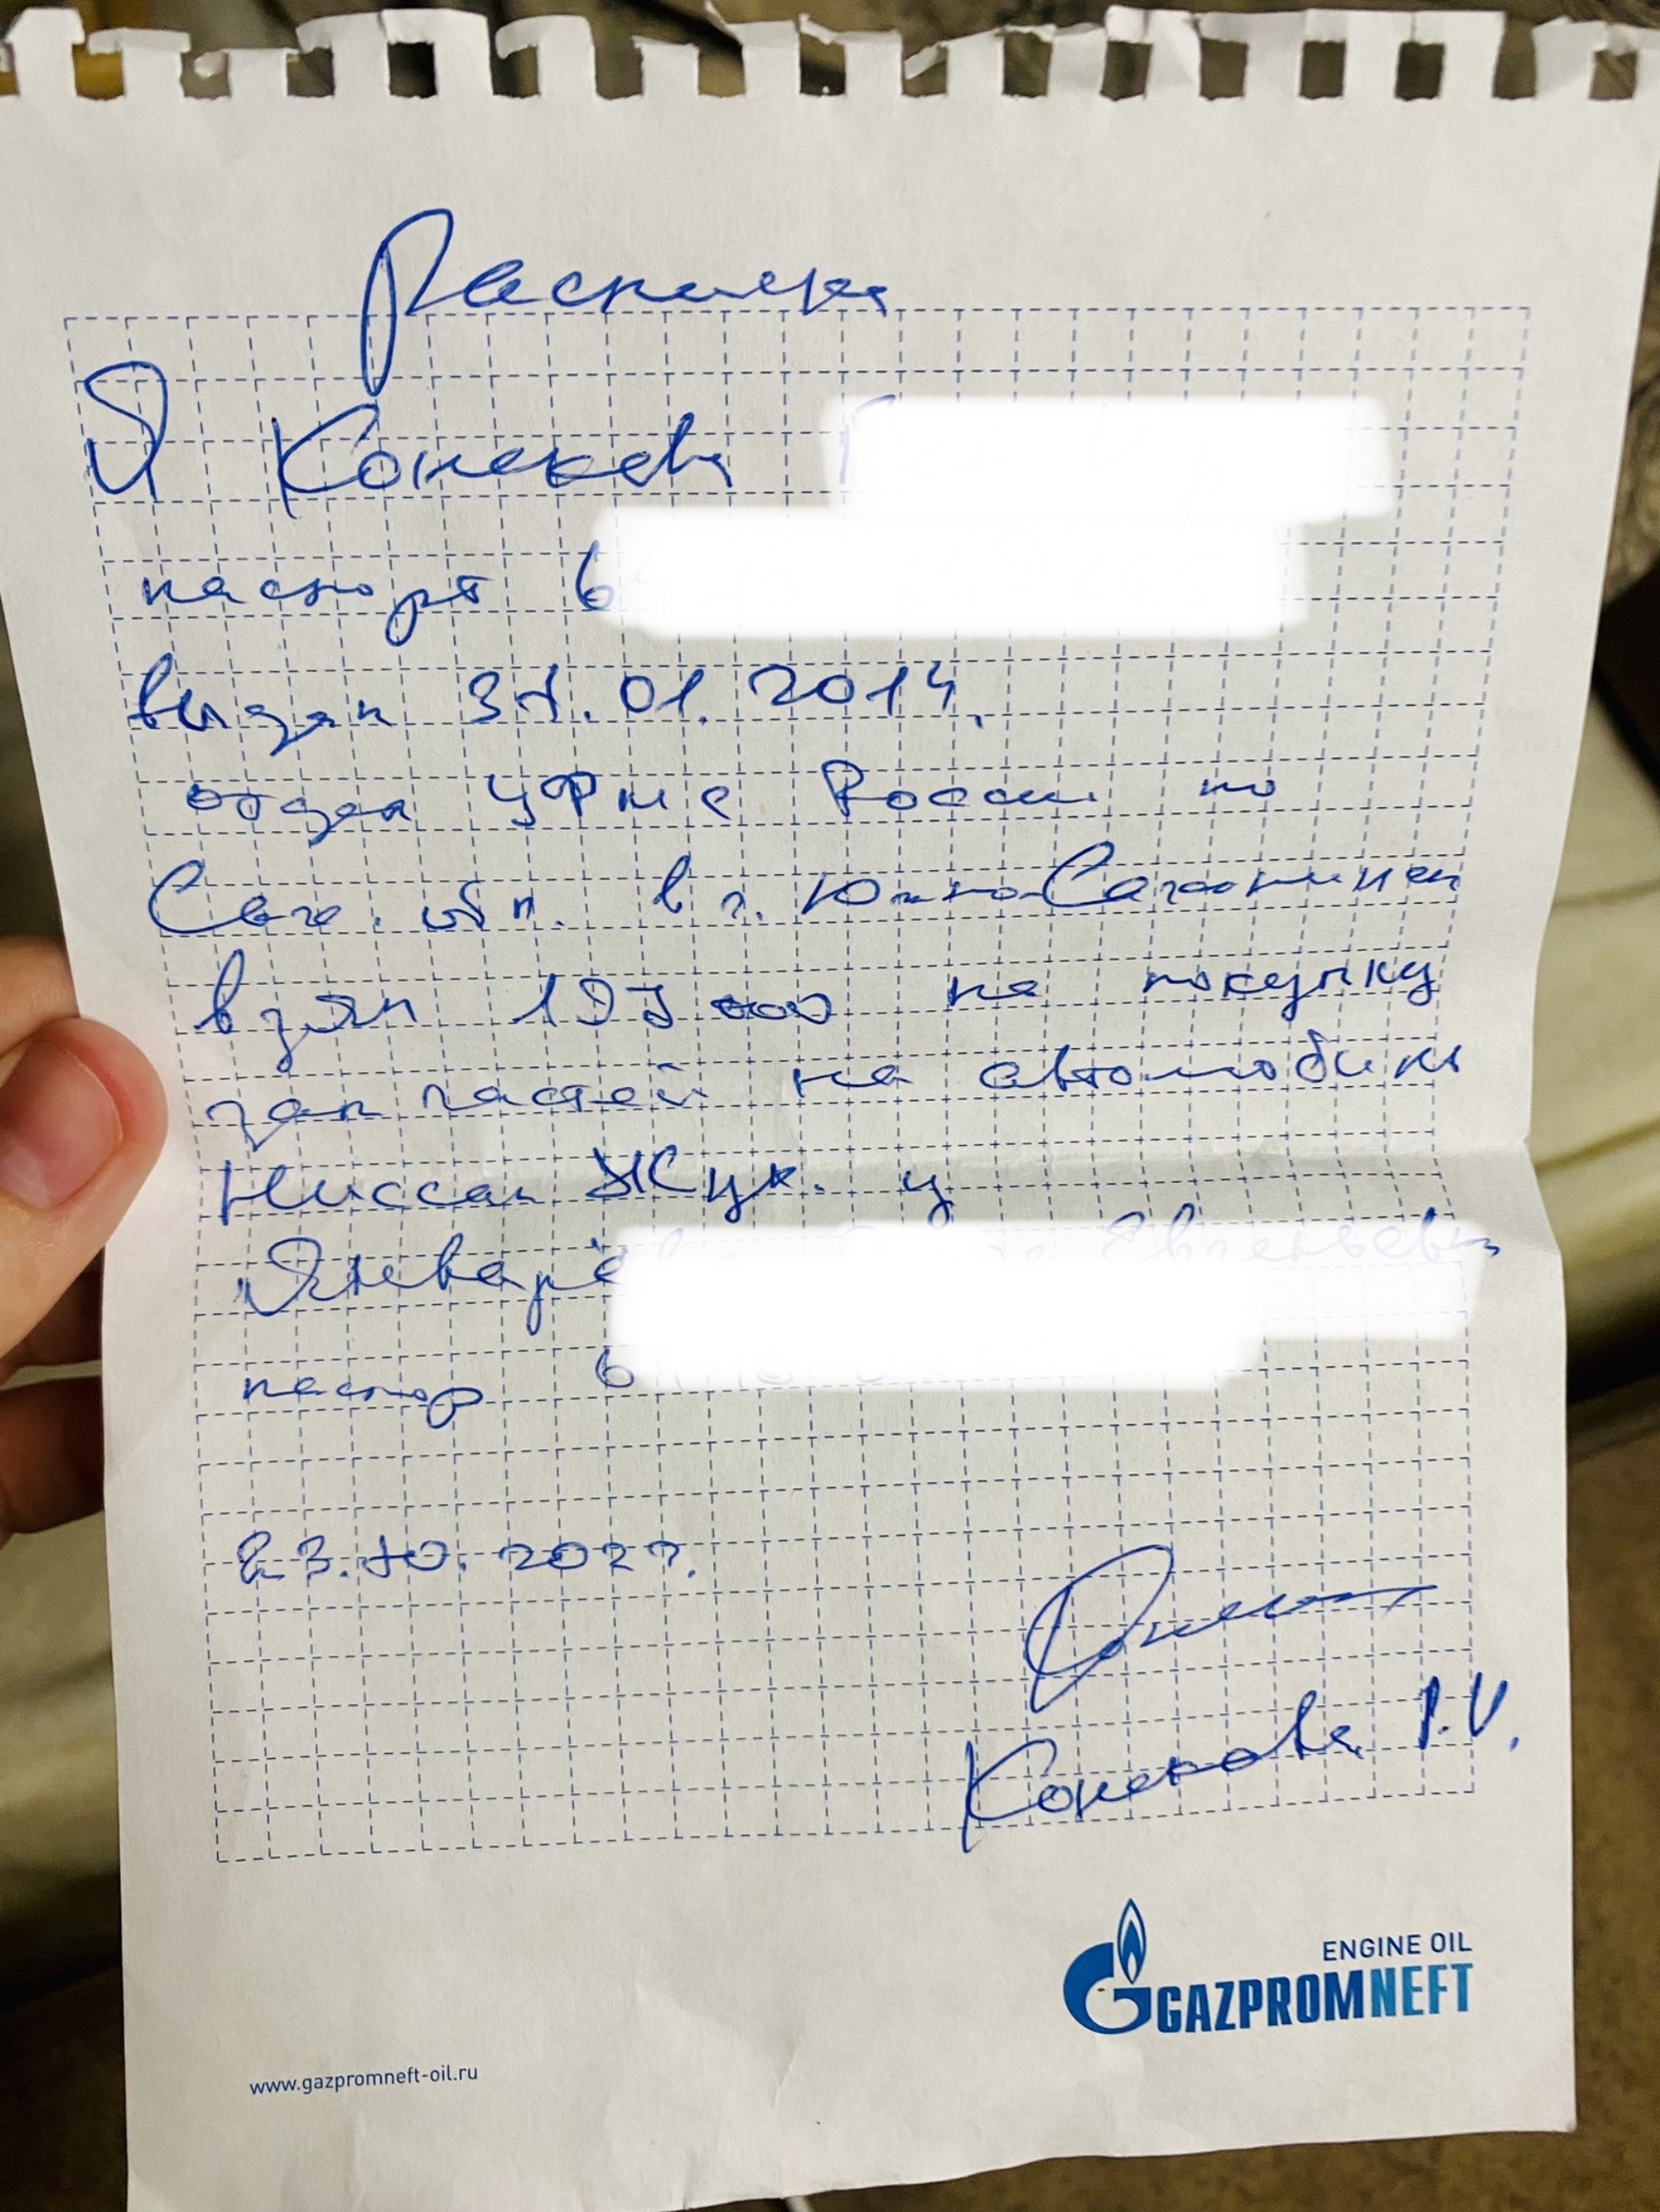 Расписка
Я Конекова
паспорт 6
выдан 31.01.2014.
отдел УФМС России по
Сах. обл. в г. Южно-Сахалинск
взял 195 000 на покупку
зап частей на автомобиль
Ниссан Жук. у
Январ
Евгеньевны
паспор 6
23.10.2022.
Конекова
ENGINE OIL
GAZPROMNEFT
www.gazpromneft-oil.ru